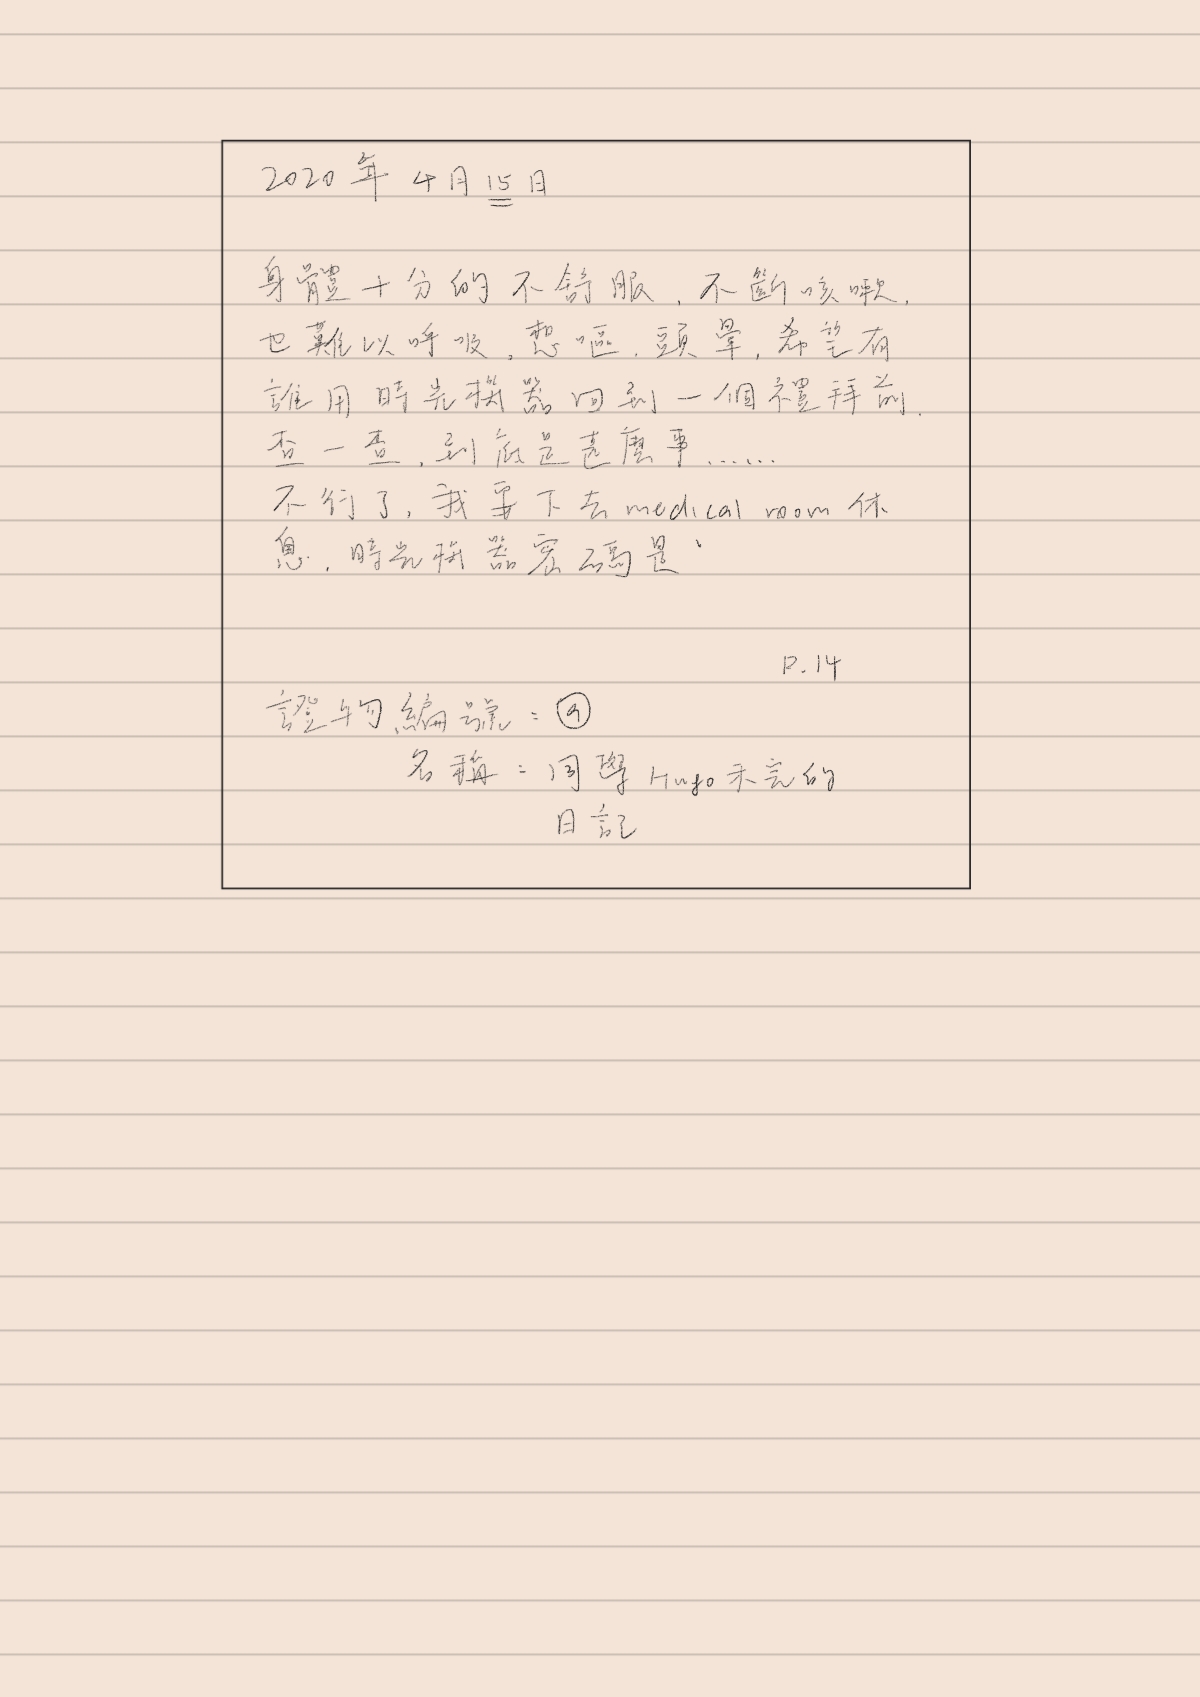 2020年 4月15日
身體十分的不舒服,不斷咳嗽,
也難以呼吸,想嘔,頭暈,希望有
誰用時光機器回到一個禮拜前,
查一查,到底是甚麼事......
不行了,我要下去medical room休
息,時光機器密碼是
P.14
證物編號:⑨
名稱:同學Hugo未完的
日記